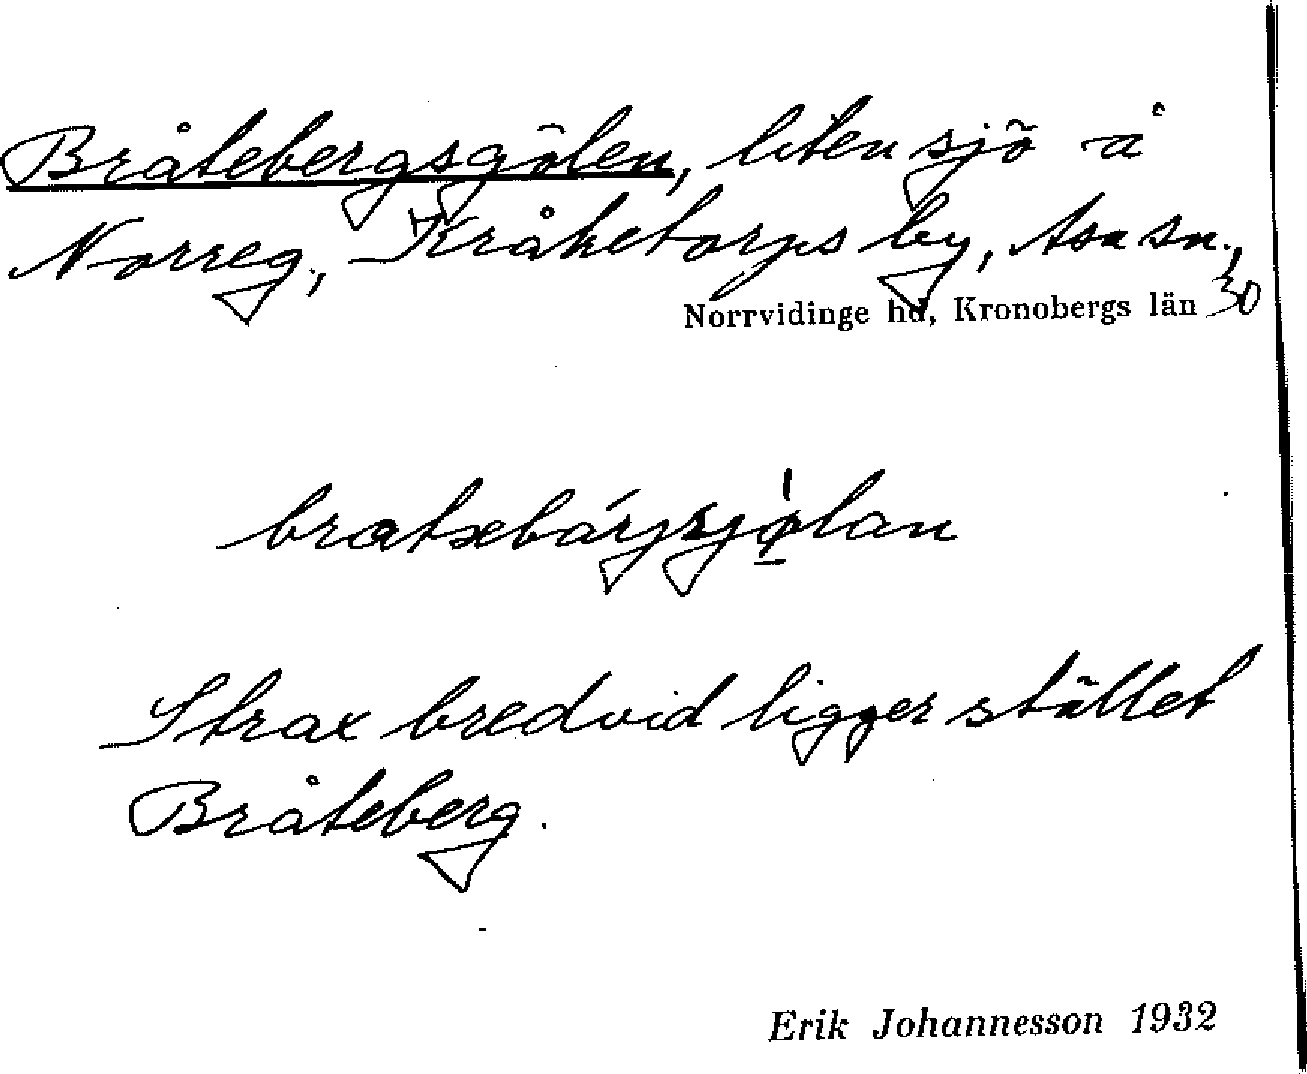 Bråtebergsgölen, liten sjö å
Norreg., Kråketorps by, Asa sn.,
Norrvidinge hd, Kronobergs län 30
Strax bredvid ligger stället
Bråteberg.
Erik Johannesson 1932